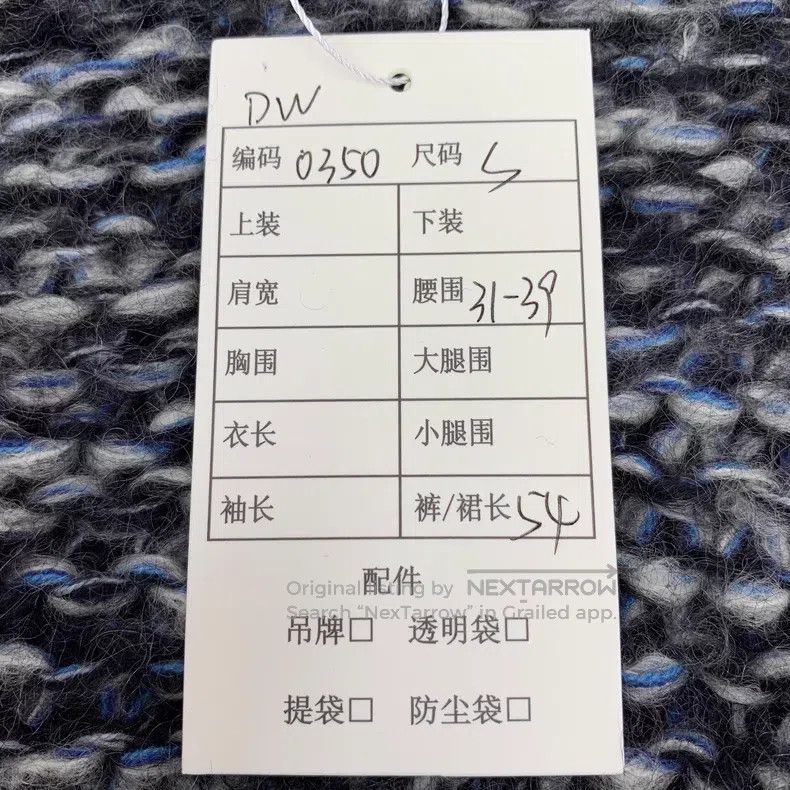 DW
编码 0350 尺码 S
上装 下装
肩宽 腰围 31-39
胸围 大腿围
衣长 小腿围
袖长 裤/裙长 54
配件
Original listing by NEXTARROW
Search “NexTarrow” in Grailed app.
吊牌□ 透明袋□
提袋□ 防尘袋□